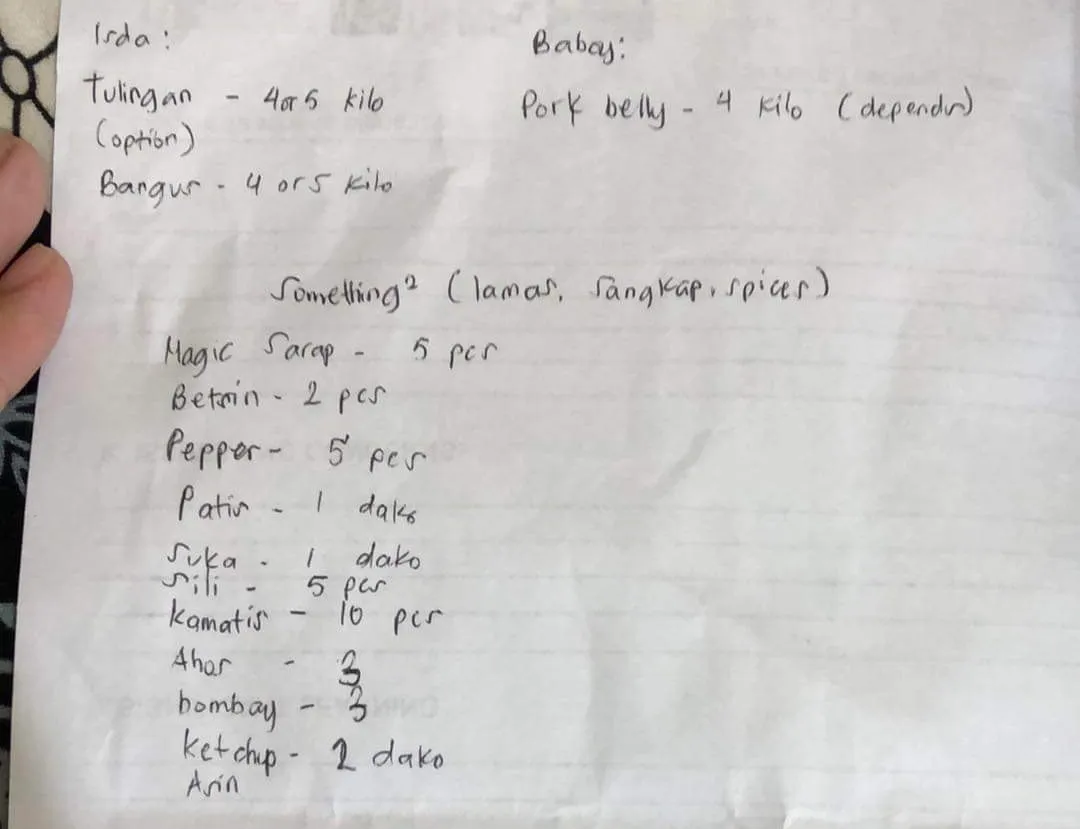 Isda:
Tulingan - 4 or 5 kilo
(option)
Bangus - 4 or 5 kilo
Baboy:
Pork belly - 4 kilo (depends)
Something² (lamas, sangkap, spices)
Magic Sarap - 5 pcs
Betsin - 2 pcs
Pepper - 5 pcs
Patis - 1 dako
Suka - 1 dako
Sili - 5 pcs
Kamatis - 10 pcs
Ahos - 3
bombay - 3
ketchup - 2 dako
Asin